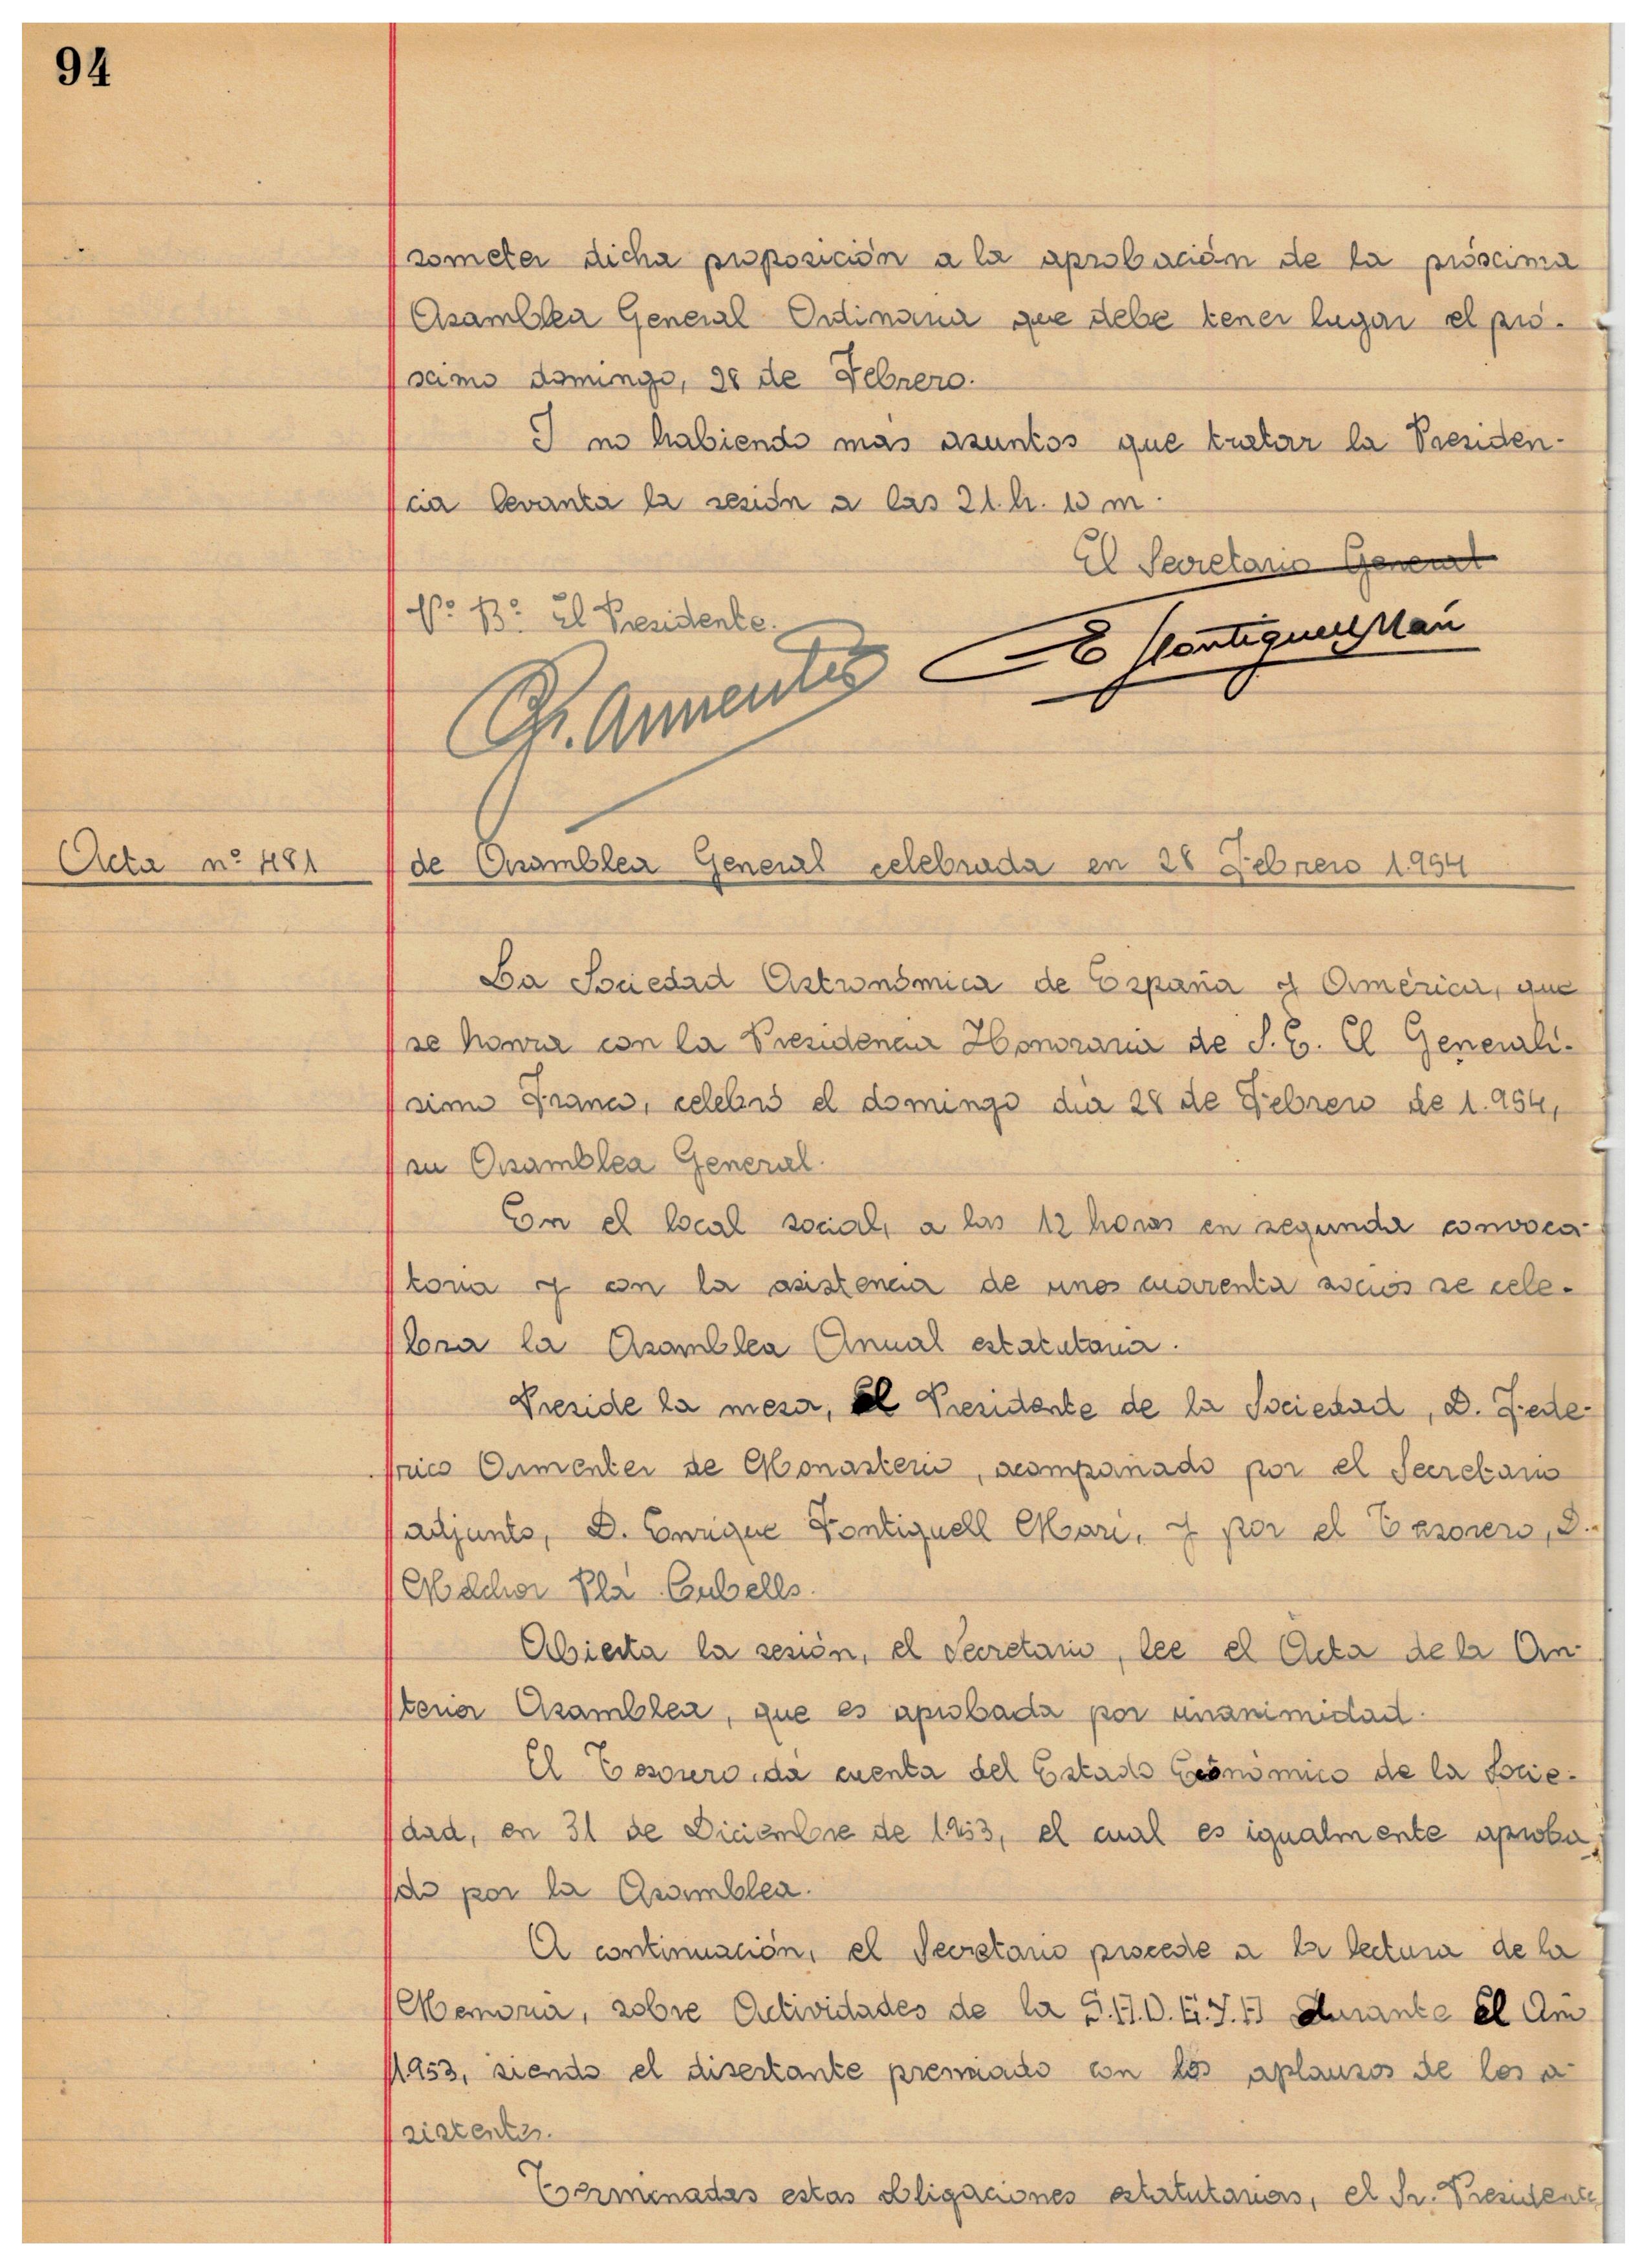 94
someter dicha proposición a la aprobación de la próxima
Asamblea General Ordinaria que debe tener lugar el pró-
ximo domingo, 28 de Febrero.
I no habiendo mas asuntos que tratar la Presiden-
cia levanta la sesión a las 21.h. 10 m.
El Secretario General
Vº Bº El Presidente.
Acta nº 481 de Asamblea General celebrada en 28 Febrero 1.954
La Sociedad Astronómica de España y América, que
se honra con la Presidencia Honoraria de S.E. El Generali-
simo Franco, celebró el domingo dia 28 de Febrero de 1.954,
su Asamblea General.
En el local social, a las 12 horas en segunda convoca-
toria y con la asistencia de unos cuarenta socios se cele-
bra la Asamblea Anual estatutaria.
Preside la mesa, El Presidente de la Sociedad, D. Fede-
rico Armenter de Monasterio, acompañado por el Secretario
adjunto, D. Enrique Fontiguell Mari, y por el Tesorero, D.
Melchor Plá Cubells.
Abierta la sesión, el Secretario, lee el Acta de la An-
terior Asamblea, que es aprobada por unanimidad.
El Tesorero, dá cuenta del Estado Económico de la Socie-
dad, en 31 de Diciembre de 1.953, el cual es igualmente aproba-
do por la Asamblea.
A continuación, el Secretario procede a la lectura de la
Memoria, sobre Actividades de la S.A.D.E.Y.A durante El Año
1.953, siendo el disertante premiado con los aplausos de los a-
sistentes.
Terminadas estas obligaciones estatutarias, el Sr. Presidente